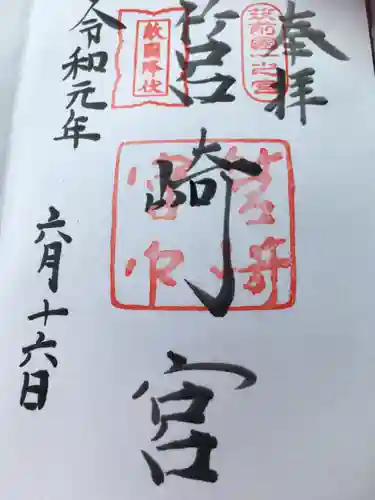 奉拝
筑前國一之宮
筥崎宮
敵國降伏
令和元年
六月十六日